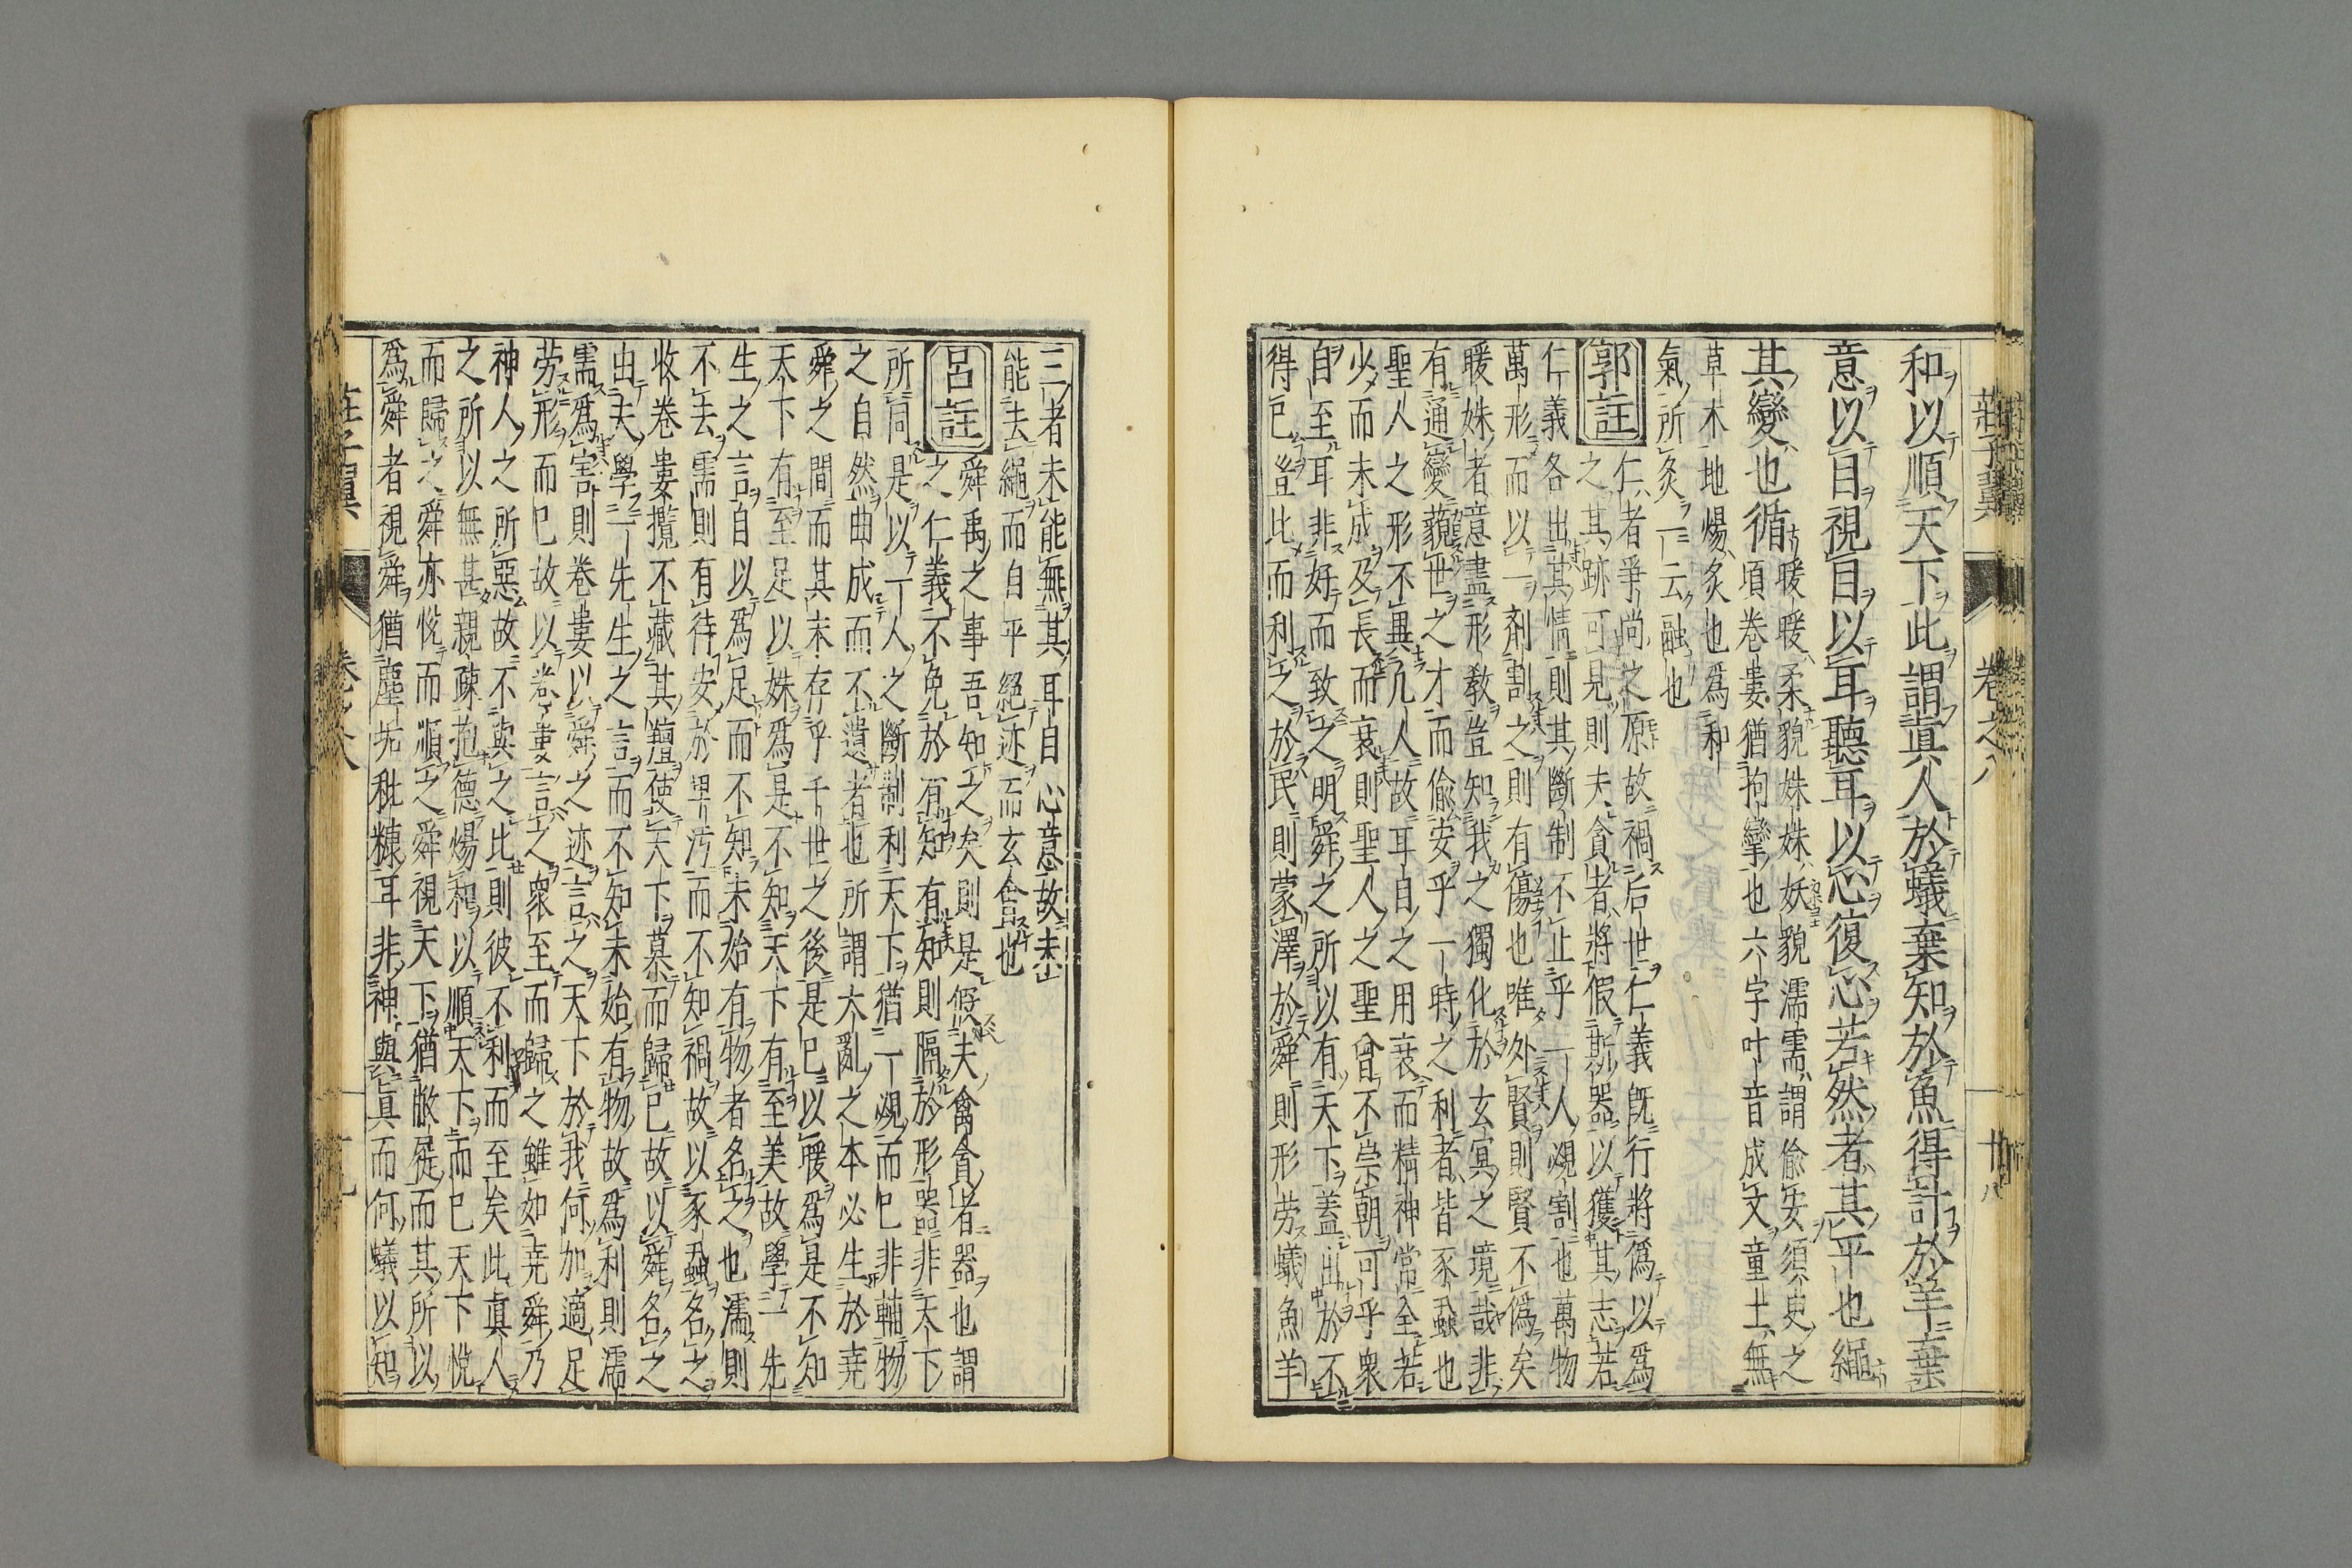 莊子翼
卷之八
廿八
和以順天下此謂眞人於蟻棄知於魚得計於羊棄
意以目視目以耳聽耳以心復心若然者其平也繩
其變也循
暖暖柔貌姝姝妖貌濡需謂偷安須臾之
頃卷婁猶拘攣也六字叶音成文童土無
草木地煬炙也爲和
氣所炙一云融也
郭註
仁者爭尚之原故禍后世仁義旣行將僞以爲
之其跡可見則夫貪者將假斯器以獲其志若
仁義各出其情則其斷制不止乎一人覕割也萬物
萬形而以一劑割之則有傷也唯外賢則賢不僞矣
暖姝者意盡形教豈知我之獨化於玄冥之境哉非
有通變藐世之才而偷安乎一時之利者皆豕蝨也
聖人之形不異凡人故耳自之用衰而精神常全若
少而未成及長而衰則聖人之聖曾不崇朝可乎衆
自至耳非好而致之明舜之所以有天下蓋出於不
得已豈比而利之於民則蒙澤於舜則形勞蟻魚羊
三者未能無其耳目心意故未
能去繩而自平絕迹而玄會也
呂註
舜禹之事吾知之矣則是假夫禽貪者器也謂
之仁義不免於有知有知則隔於形器非天下
所同是以一人之斷制利天下猶一覕而已非輔物
之自然曲成而不遺者也所謂大亂之本必生於堯
舜之間而其末存乎千世之後是已以暖爲是不知
天下有至足以姝爲是不知天下有至美故學一先
生之言自以爲足而不知未始有物者名之也濡則
不去需則有待安於卑汚而不知禍故以豕蝨名之
收卷婁攬不藏其羶使天下慕而歸已故以舜名之
由夫學一先生之言而不知未始有物故爲利則濡
需爲害則卷婁以舜之迹言之天下於我何加適足
勞形而已故以卷婁言之衆至而歸之雖如堯舜乃
神人之所惡故不與之比則彼不利而至矣此眞人
之所以無甚親疎抱德煬和以順天下而已天下悅
而歸之舜亦悅而順之舜視天下猶敝屣而其所以
爲舜者視舜猶塵垢秕糠耳非神與眞而何蟻以知